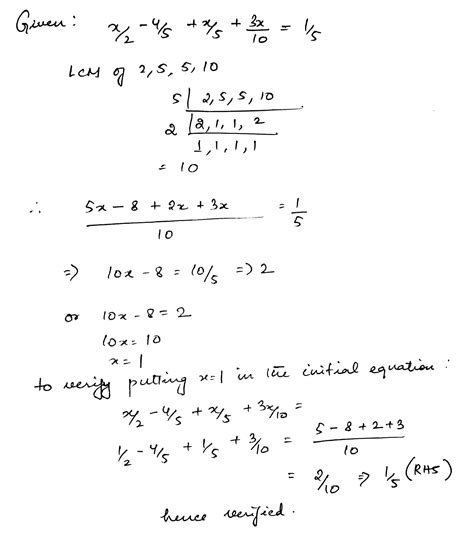 Given: x/2 - 4/5 + x/5 + 3x/10 = 1/5
LCM of 2, 5, 5, 10
5 | 2, 5, 5, 10
2 | 2, 1, 1, 2
1, 1, 1, 1
= 10
∴ (5x - 8 + 2x + 3x)/10 = 1/5
=> 10x - 8 = 10/5 => 2
or 10x - 8 = 2
10x = 10
x = 1
to verify putting x=1 in the initial equation :
x/2 - 4/5 + x/5 + 3x/10 =
1/2 - 4/5 + 1/5 + 3/10 = (5 - 8 + 2 + 3)/10
= 2/10 => 1/5 (RHS)
hence verified.